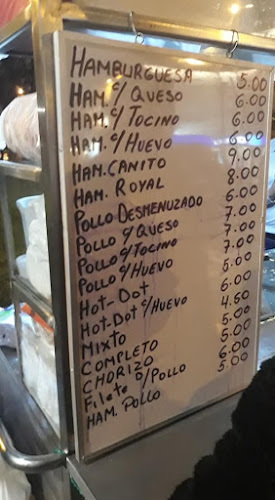 HAMBURGUESA 5.00
HAM. c/ QUESO 6.00
HAM. c/ TOCINO 6.00
HAM. c/ HUEVO 6.00
HAM. CANITO 9.00
HAM. ROYAL 8.00
POLLO DESMENUZADO 6.00
POLLO c/ QUESO 7.00
POLLO c/ TOCINO 7.00
POLLO c/ HUEVO 7.00
HOT-DOT
HOT-DOT c/ HUEVO 6.00
MIXTO 4.50
COMPLETO 5.00
CHORIZO 5.00
Filete D/POLLO 6.00
HAM. POLLO 5.00